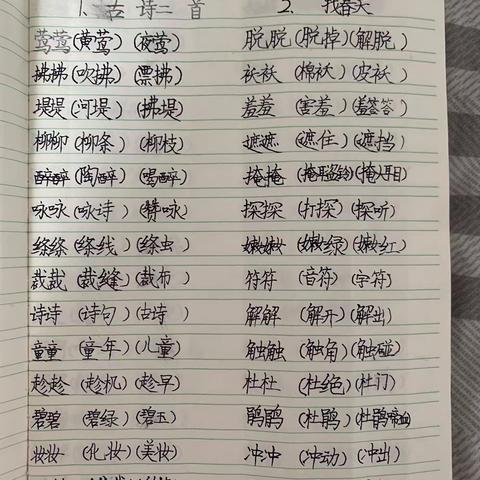 1、古诗二首
莺莺(黄莺)(夜莺)
拂拂(吹拂)(飘拂)
堤堤(河堤)(拂堤)
柳柳(柳条)(柳枝)
醉醉(陶醉)(喝醉)
咏咏(咏诗)(赞咏)
绦绦(绦线)(绦虫)
裁裁(裁缝)(裁布)
诗诗(诗句)(古诗)
童童(童年)(儿童)
趁趁(趁机)(趁早)
碧碧(碧绿)(碧玉)
妆妆(化妆)(美妆)
2、找春天
脱脱(脱掉)(解脱)
袄袄(棉袄)(皮袄)
羞羞(害羞)(羞答答)
遮遮(遮住)(遮挡)
掩掩(掩耳盗铃)(掩人耳目)
探探(打探)(探听)
嫩嫩(嫩绿)(嫩红)
符符(音符)(字符)
解解(解开)(解出)
触触(触角)(触碰)
杜杜(杜绝)(杜门)
鹃鹃(杜鹃)(杜鹃啼血)
冲冲(冲动)(冲出)